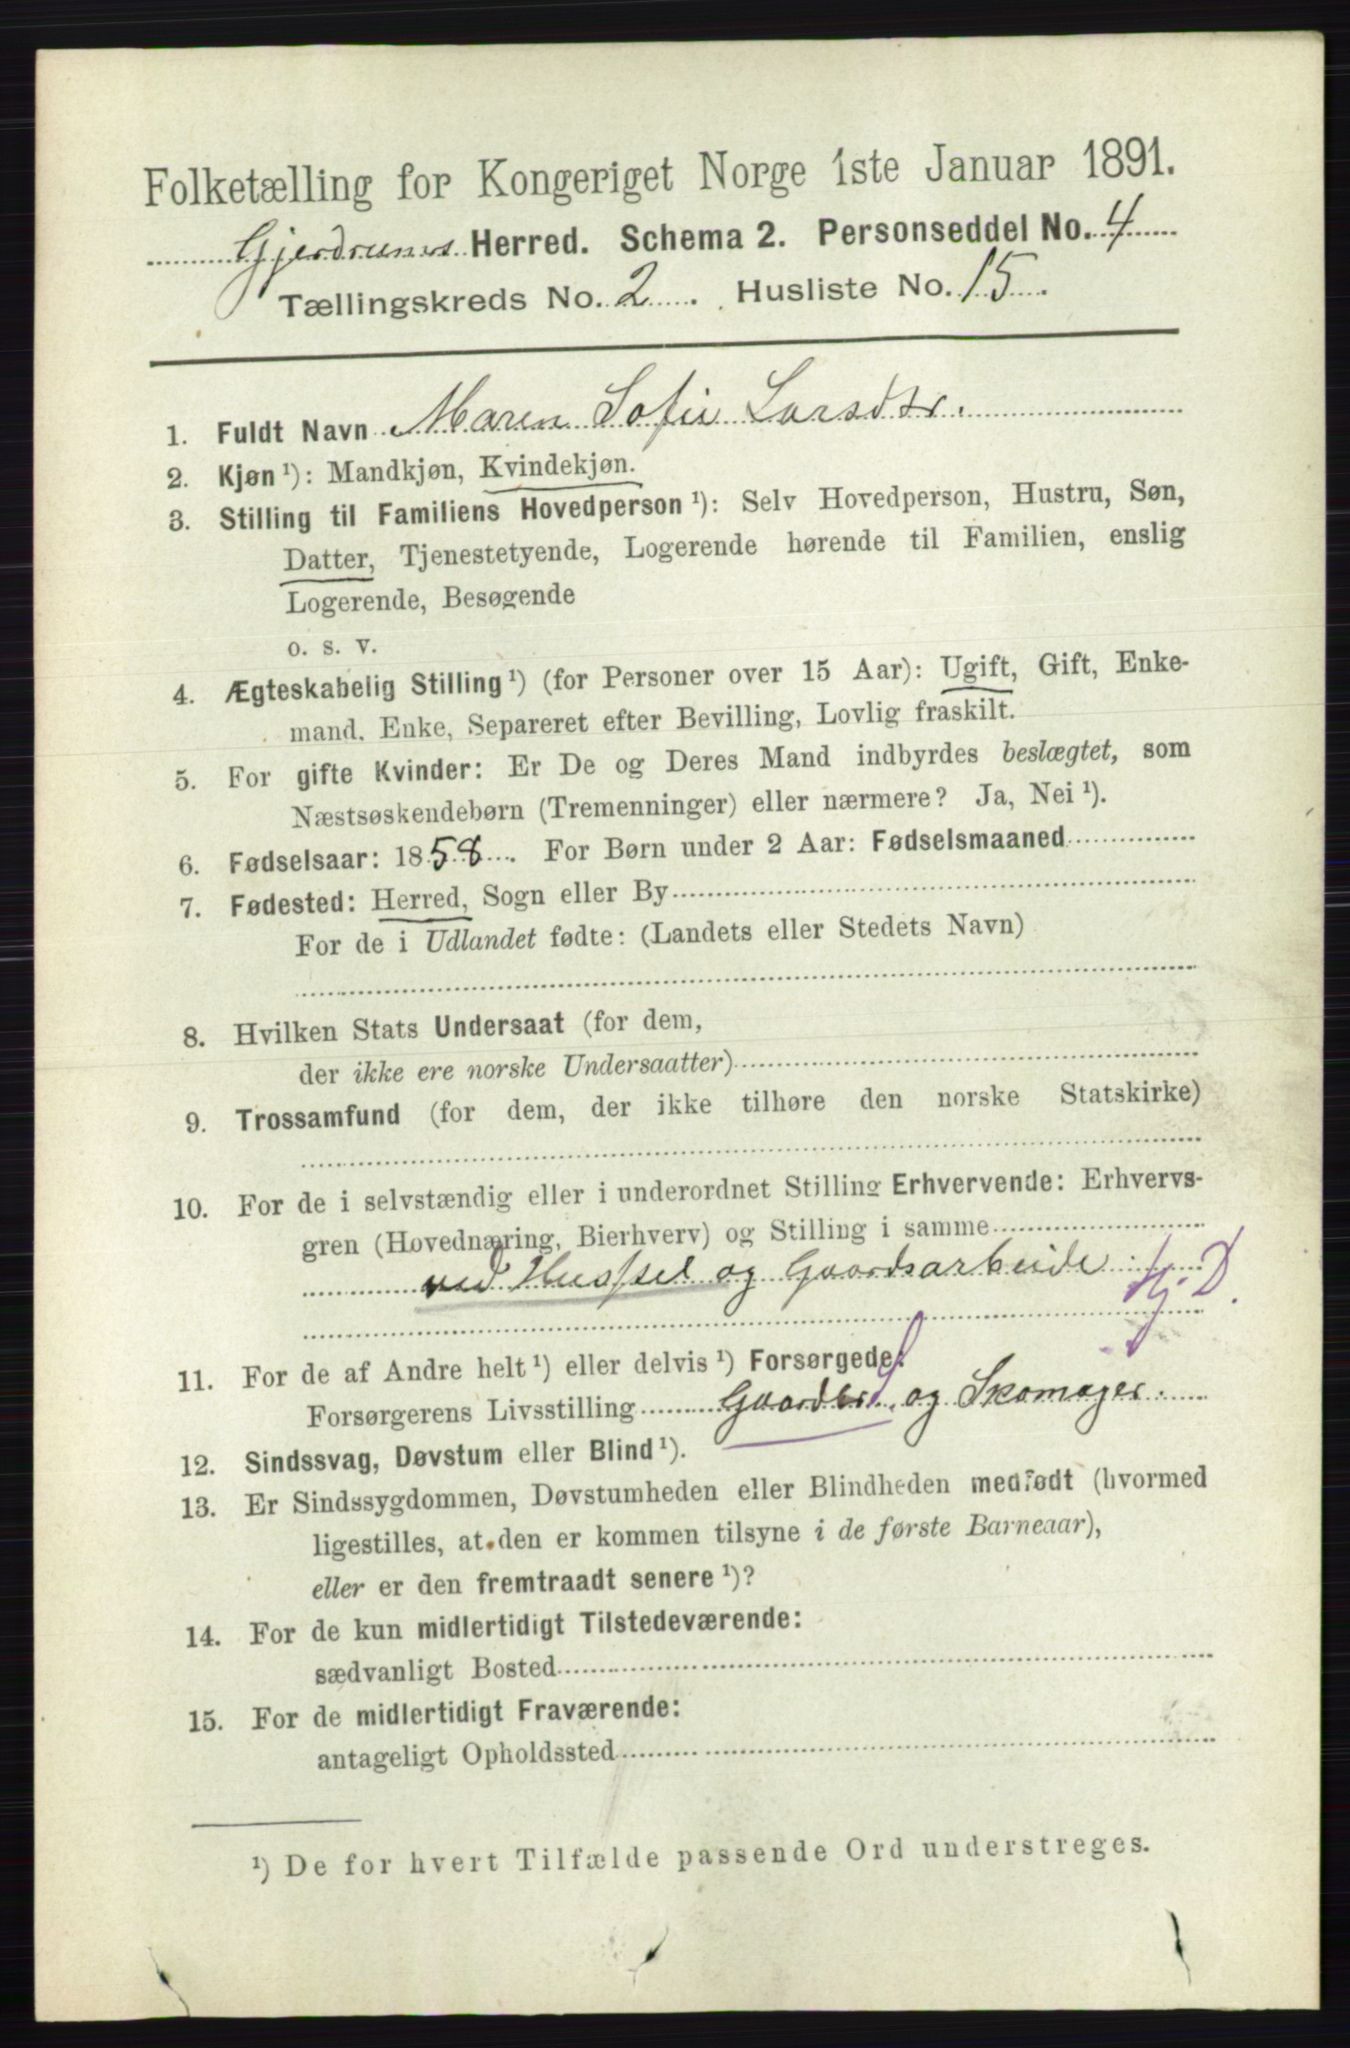 Folketælling for Kongeriget Norge 1ste Januar 1891.
Gjerdrums Herred. Schema 2. Personseddel No. 4
Tællingskreds No. 2. Husliste No. 15.
1. Fuldt Navn Maren Sofie Larsdtr.
2. Kjøn ¹): Mandkjøn, Kvindekjøn.
3. Stilling til Familiens Hovedperson ¹): Selv Hovedperson, Hustru, Søn,
Datter, Tjenestetyende, Logerende hørende til Familien, enslig
Logerende, Besøgende
o. s. v.
4. Ægteskabelig Stilling ¹) (for Personer over 15 Aar): Ugift, Gift, Enke-
mand, Enke, Separeret efter Bevilling, Lovlig fraskilt.
5. For gifte Kvinder: Er De og Deres Mand indbyrdes beslægtet, som
Næstsøskendebørn (Tremenninger) eller nærmere? Ja, Nei ¹).
6. Fødselsaar: 1858. For Børn under 2 Aar: Fødselsmaaned
7. Fødested: Herred, Sogn eller By
For de i Udlandet fødte: (Landets eller Stedets Navn)
8. Hvilken Stats Undersaat (for dem,
der ikke ere norske Undersaatter)
9. Trossamfund (for dem, der ikke tilhøre den norske Statskirke)
10. For de i selvstændig eller i underordnet Stilling Erhvervende: Erhvervs-
gren (Hovednæring, Bierhverv) og Stilling i samme
ved Husstel og Gaardsarbeide Hj. D.
11. For de af Andre helt ¹) eller delvis ¹) Forsørgede:
Forsørgerens Livsstilling Gaardbr. S og Skomager.
12. Sindssvag, Døvstum eller Blind ¹).
13. Er Sindssygdommen, Døvstumheden eller Blindheden medfødt (hvormed
ligestilles, at den er kommen tilsyne i de første Barneaar),
eller er den fremtraadt senere ¹)?
14. For de kun midlertidigt Tilstedeværende:
sædvanligt Bosted
15. For de midlertidigt Fraværende:
antageligt Opholdssted
¹) De for hvert Tilfælde passende Ord understreges.